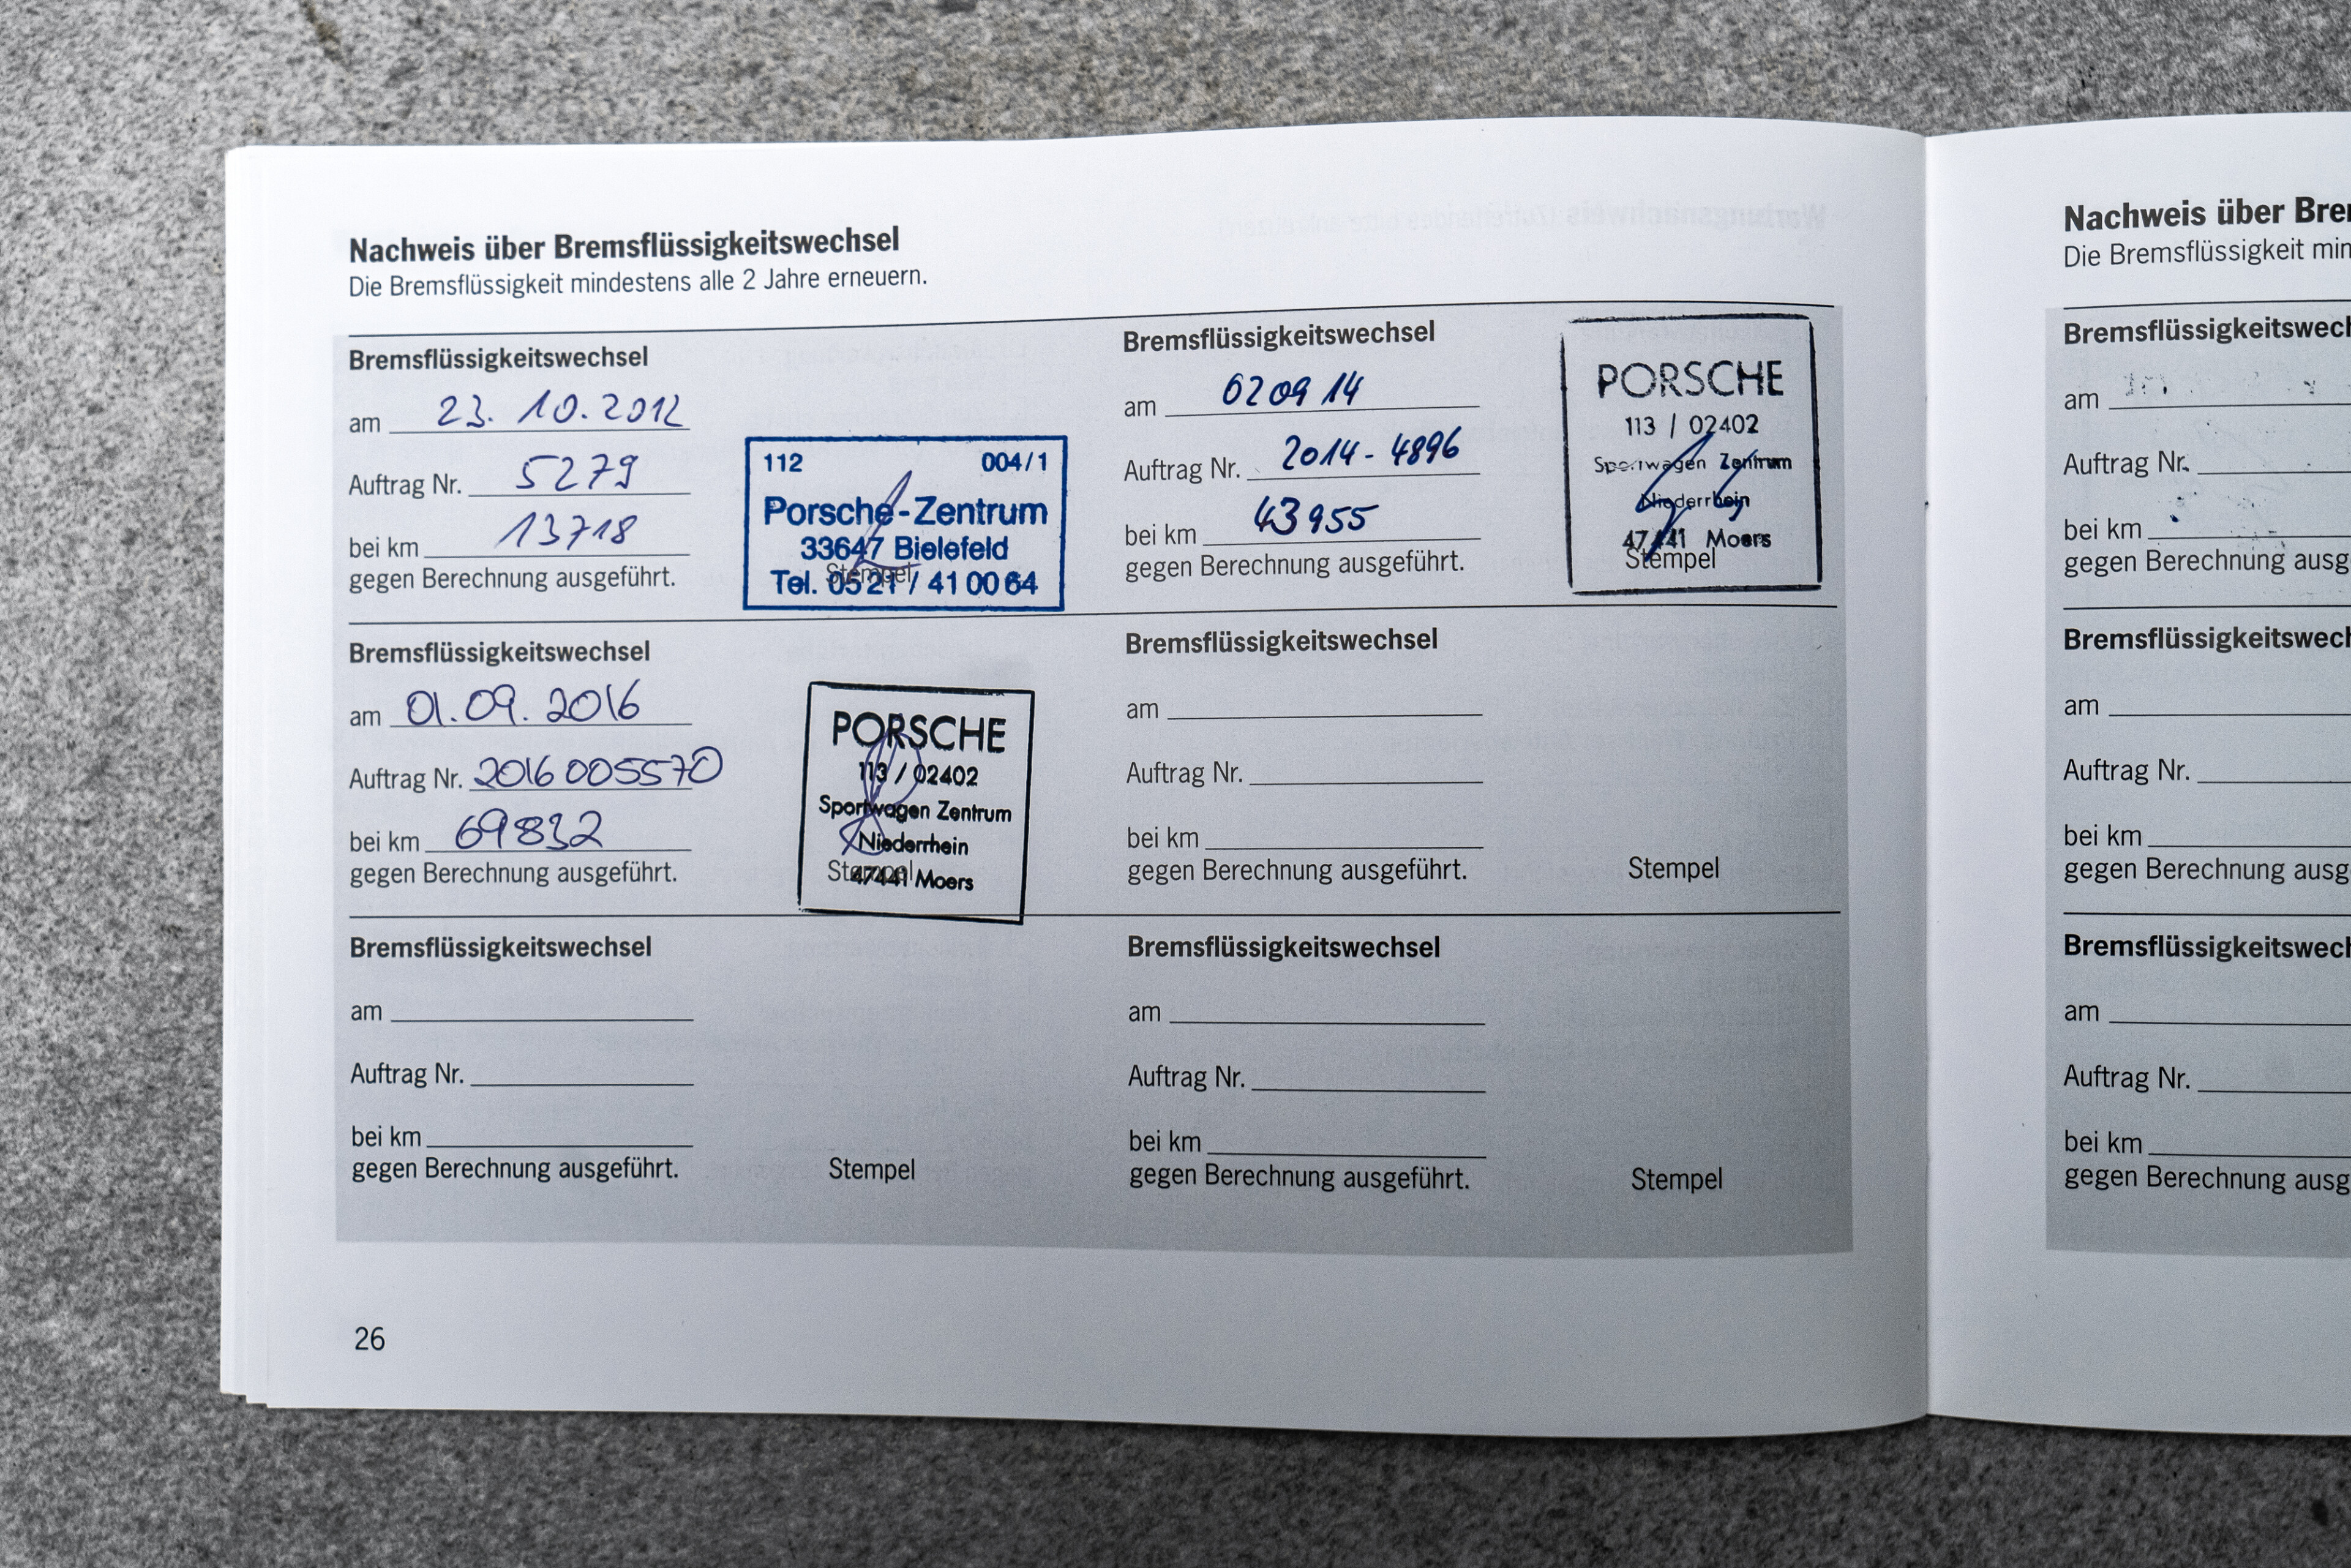 Nachweis über Bremsflüssigkeitswechsel
Die Bremsflüssigkeit mindestens alle 2 Jahre erneuern.
Bremsflüssigkeitswechsel
am 23. 10. 2012
Auftrag Nr. 5279
bei km 13718
gegen Berechnung ausgeführt.
112 004/1
Porsche-Zentrum
33647 Bielefeld
Tel. 05 21 / 41 00 64
Stempel
Bremsflüssigkeitswechsel
am 02 09 14
Auftrag Nr. 2014-4896
bei km 43955
gegen Berechnung ausgeführt.
PORSCHE
113 / 02402
Sportwagen Zentrum
Niederrhein
47441 Moers
Stempel
Bremsflüssigkeitswechsel
am 01.09.2016
Auftrag Nr. 2016005570
bei km 69832
gegen Berechnung ausgeführt.
PORSCHE
113 / 02402
Sportwagen Zentrum
Niederrhein
47441 Moers
Stempel
Bremsflüssigkeitswechsel
am
Auftrag Nr.
bei km
gegen Berechnung ausgeführt. Stempel
Bremsflüssigkeitswechsel
am
Auftrag Nr.
bei km
gegen Berechnung ausgeführt. Stempel
Bremsflüssigkeitswechsel
am
Auftrag Nr.
bei km
gegen Berechnung ausgeführt. Stempel
26
Nachweis über Bre
Die Bremsflüssigkeit min
Bremsflüssigkeitswech
am
Auftrag Nr.
bei km
gegen Berechnung ausg
Bremsflüssigkeitswech
am
Auftrag Nr.
bei km
gegen Berechnung ausg
Bremsflüssigkeitswech
am
Auftrag Nr.
bei km
gegen Berechnung ausg